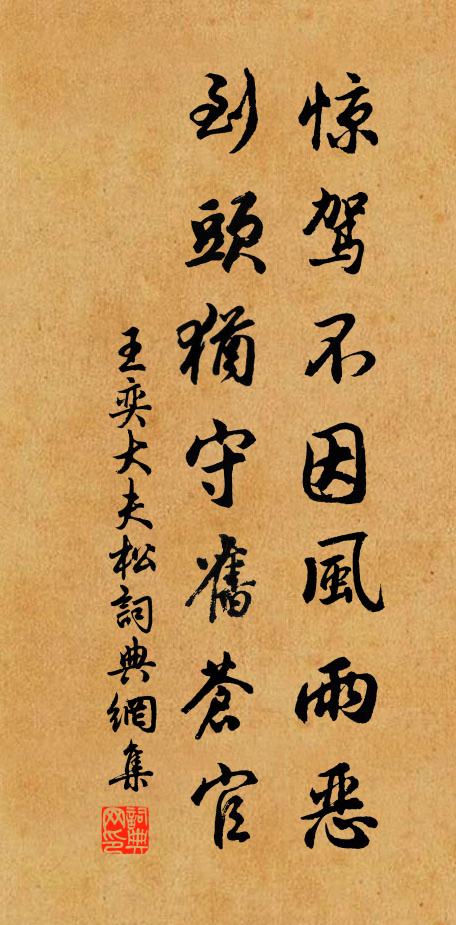 惊驾不因風雨恶
到頭猶守舊蒼官
王奕大夫松詞典網集
詞典网印